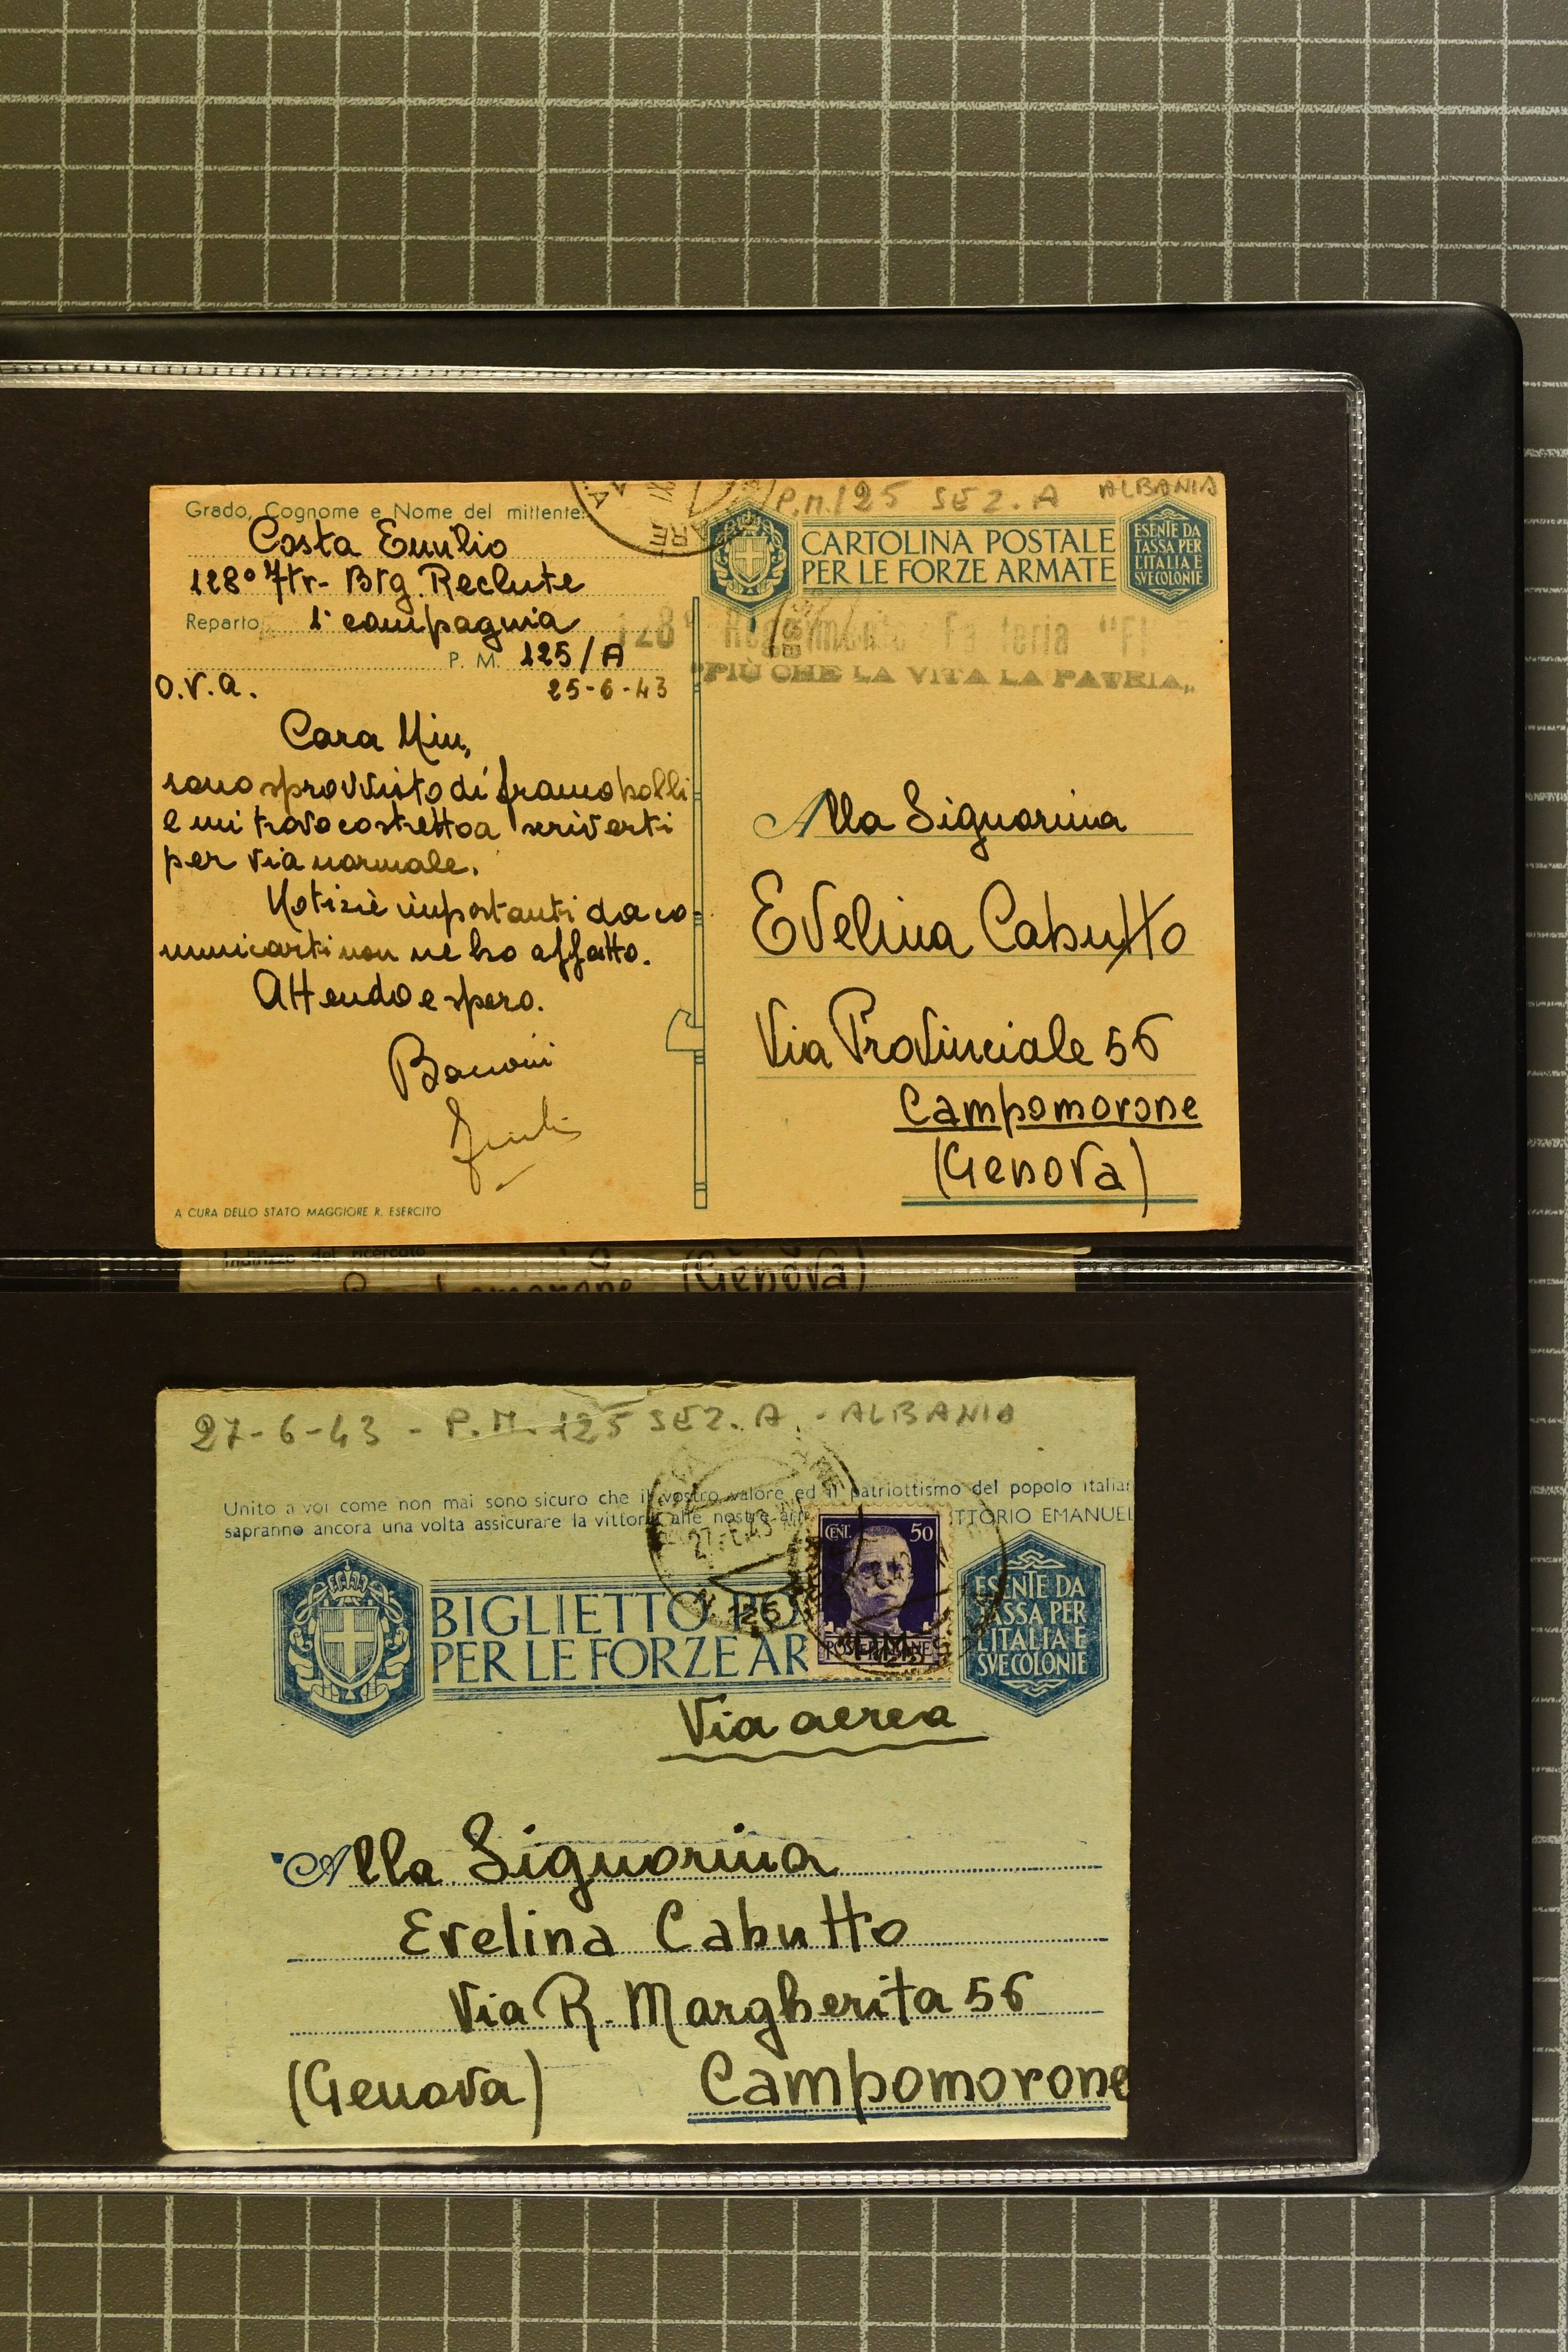 P.M. 125 SEZ. A ALBANIA
Grado, Cognome e Nome del mittente:
Costa Emilio
128° Ftr- Btg. Reclute
Reparto 1ª compagnia
P. M. 125/A
O.V.A. 25-6-43
CARTOLINA POSTALE
PER LE FORZE ARMATE
ESENTE DA
TASSA PER
L'ITALIA E
SVE COLONIE
128° Reggimento Fanteria "FI
"PIÙ CHE LA VITA LA PATRIA„
Cara Miu,
sono sprovvisto di francobolli
e mi trovo costretto a scriverti
per via normale.
Notizie importanti da co-
municarti non ne ho affatto.
Attendo e spero.
Bacioni
A CURA DELLO STATO MAGGIORE R. ESERCITO
Alla Signorina
Evelina Cabutto
Via Provinciale 56
Campomorone
(Genova)
Indirizzo del ricercato
(Genova)
27-6-43 - P.M. 125 SEZ. A. - ALBANIA
Unito a voi come non mai sono sicuro che il vostro valore ed il patriottismo del popolo italian
sapranno ancora una volta assicurare la vittoria alle nostre ar TTORIO EMANUEL
27.6.43
125
CENT. 50
POSTE ITALIANE
BIGLIETTO PO
PER LE FORZE AR
ESENTE DA
TASSA PER
L'ITALIA E
SVE COLONIE
Via aerea
Alla Signorina
Evelina Cabutto
Via R. Margherita 56
(Genova) Campomorone